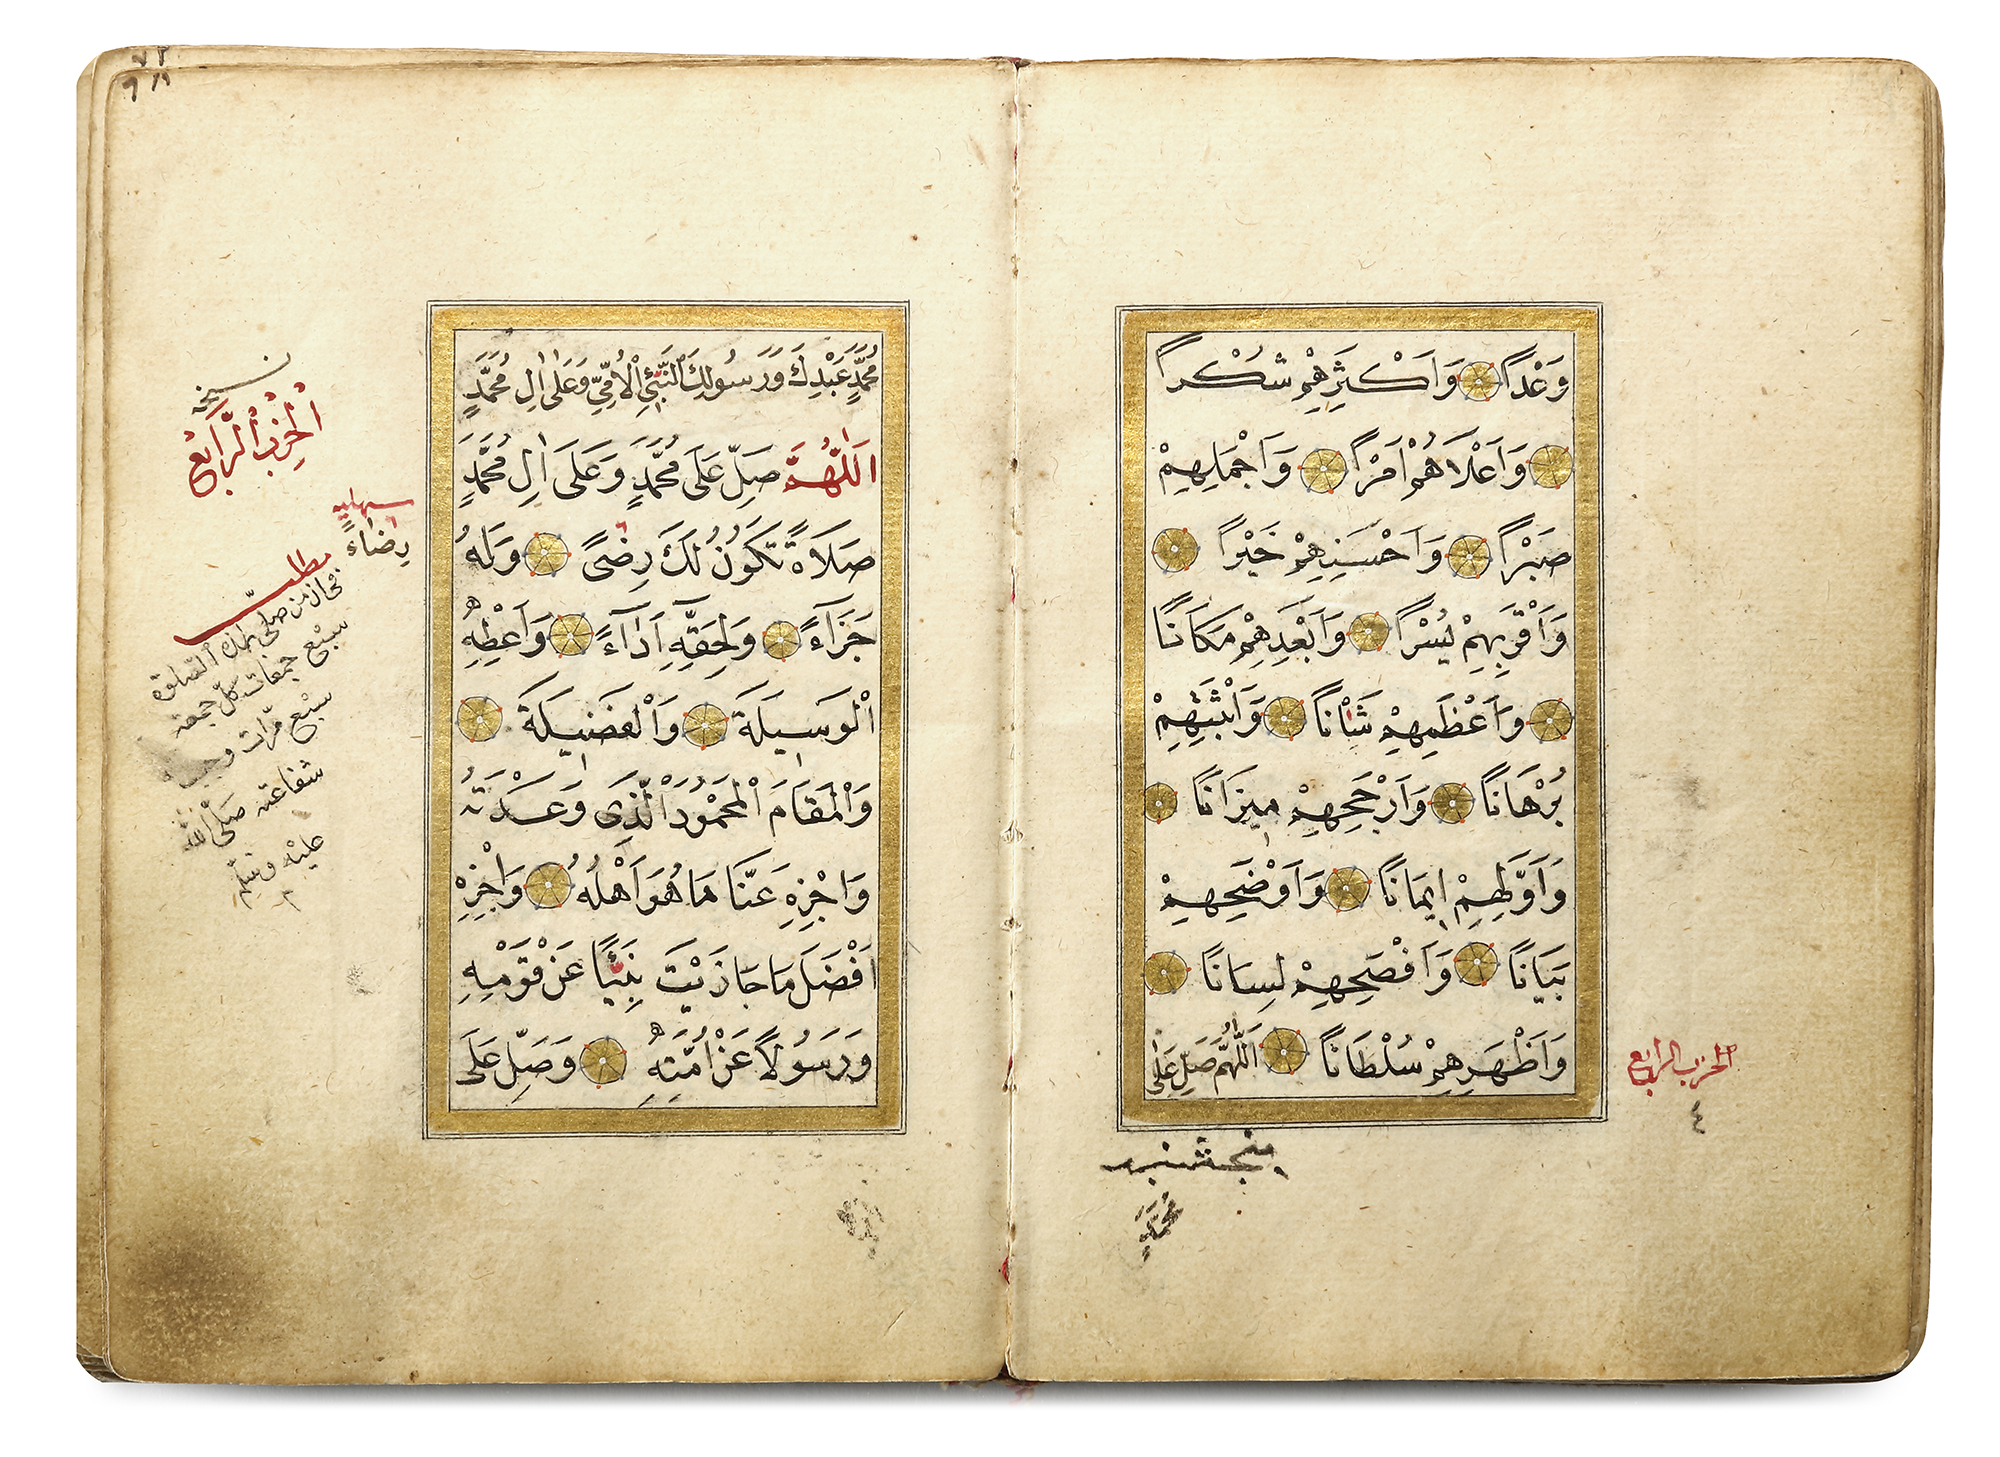 وَعْدًا وَاَكْثَرِهِمْ شُكْرًا
وَاَعْلَاهُمْ اَمْرًا وَاَجْمَلِهِمْ
صَبْرًا وَاَحْسَنِهِمْ خَيْرًا
وَاَقْرَبِهِمْ يُسْرًا وَاَبْعَدِهِمْ مَكَانًا
وَاَعْظَمِهِمْ شَاْنًا وَاَثْبَتِهِمْ
بُرْهَانًا وَاَرْجَحِهِمْ مِيزَانًا
وَاَوَّلِهِمْ اِيمَانًا وَاَوْضَحِهِمْ
بَيَانًا وَاَفْصَحِهِمْ لِسَانًا
وَاَظْهَرِهِمْ سُلْطَانًا اَللّٰهُمَّ صَلِّ عَلٰى
الحزب الرابع
٤
پنجشنبه
مُحَمَّدٍ
مُحَمَّدٍ عَبْدِكَ وَرَسُولِكَ النَّبِيِّ الْاُمِّيِّ وَعَلٰى اٰلِ مُحَمَّدٍ
اَللّٰهُمَّ صَلِّ عَلَى مُحَمَّدٍ وَعَلَى اٰلِ مُحَمَّدٍ
صَلَاةً تَكُونُ لَكَ رِضًى وَلَهُ
جَزَاءً وَلِحَقِّهِ اَدَاءً وَاَعْطِهِ
الْوَسِيلَةَ وَالْفَضِيلَةَ
وَالْمَقَامَ الْمَحْمُودَ الَّذِى وَعَدْتَهُ
وَاجْزِهِ عَنَّا مَا هُوَ اَهْلُهُ وَاجْزِهِ
اَفْضَلَ مَا جَازَيْتَ نَبِيًّا عَنْ قَوْمِهِ
وَرَسُولًا عَنْ اُمَّتِهِ وَصَلِّ عَلَى
نسخه
الْحِزْبُ الرَّابِعُ
سهليه
رِضَاءً
مطلب
من صلى بهذه الصلوة
سبع جمعات كل جمعه
سبع مرات وجبت
شفاعته صلى الله
عليه وسلم
م